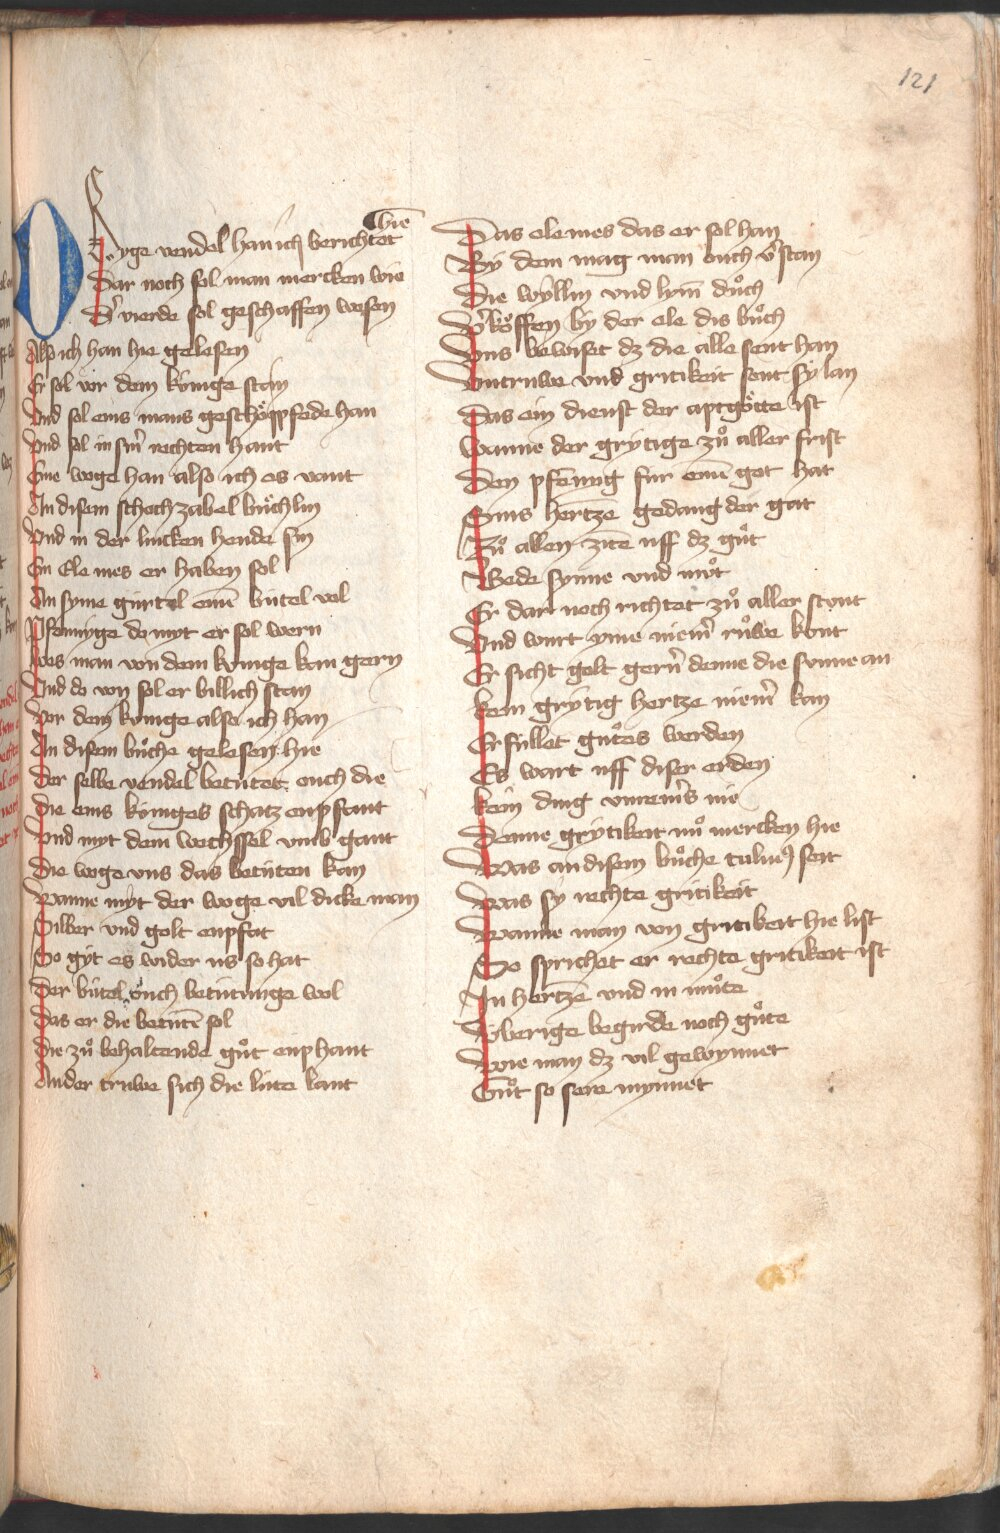 121
hie
Dryge vendel han ich berichtet
Dar noch sol man mercken wie
Dˀ vierde sol geschaffen wesen
Also ich han hie gelesen
Er sol vor dem kónige stan
Vnd sol eins mans geschöpfede han
Vnd sol in sinˀ rechten hant
Eine woge han also ich es vant
In disem schochzabel bu̇chlin
Vnd in der lincken hende sin
Ein Ele mes er haben sol
An syme gúrtel einē bútel vol
Pfenniyge do myt er sol wern
Wes man von dem kónige kan gern
Vnd do von sol er billich stan
Vor dem kónige also ich han
In disem bůche gelesen hie
Der selbe vendel betútet ouch die
Die eins kóniges schatz enpfant
Vnd myt dem wechssel vmb gant
Die woge vns das betúten kan
Wanne myt der woge vil dicke man
Silber vnd golt enpfat
So gyt es wider us so hat
Der bútel ouch betútunge wol
Das er die betútē sol
Die zů behaltende gůt enphant
Ander truwe sich die lúte lant
Das elemes das er sol han
By dem mag man ouch vˀstan
Die wyllin vnd lynī důch
Vˀkȯffen by der ele dis bůch
Vns bewiset dz die alle sent han
Vntruwe vnd gritikeit sont sy lan
Das ein dienst der aptgȯtte ist
Wanne der grytige zů aller frist
Den pfennig fúr einē got hat
Sins hertzē gedang der gat
Zů allen zitē uff dz gůt
Bede synne vnd můt
Er dar noch richtet zů aller stunt
Vnd wurt yme niemˀ růwe kunt
Er sicht golt gernˀ denne die sunne an
Kein grytig hertze niemˀ kan
Erfúllet gůtes werden
Es wart uff diser erden
Kein ding vnreinˀs nie
Denne grytikeit nů mercken hie
Was an disem bůche tuliuꝰ seit
Was sy rechte gritikeit
Wanne man von gritikeit hie list
So sprichet er rechte gritikeit ist
In hertzē vnd in můte
Úberige begirde noch gůte
Wie man dz vil gewynnet
Gůt so sere mynnet